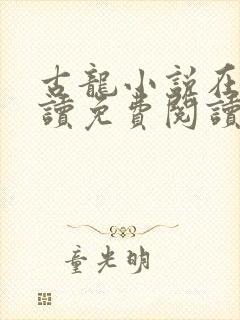 古龍小說在
讀免費閱讀
童光明